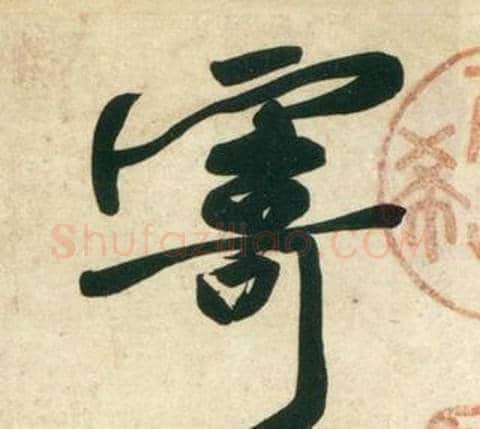 寄
Shufaziliao.com